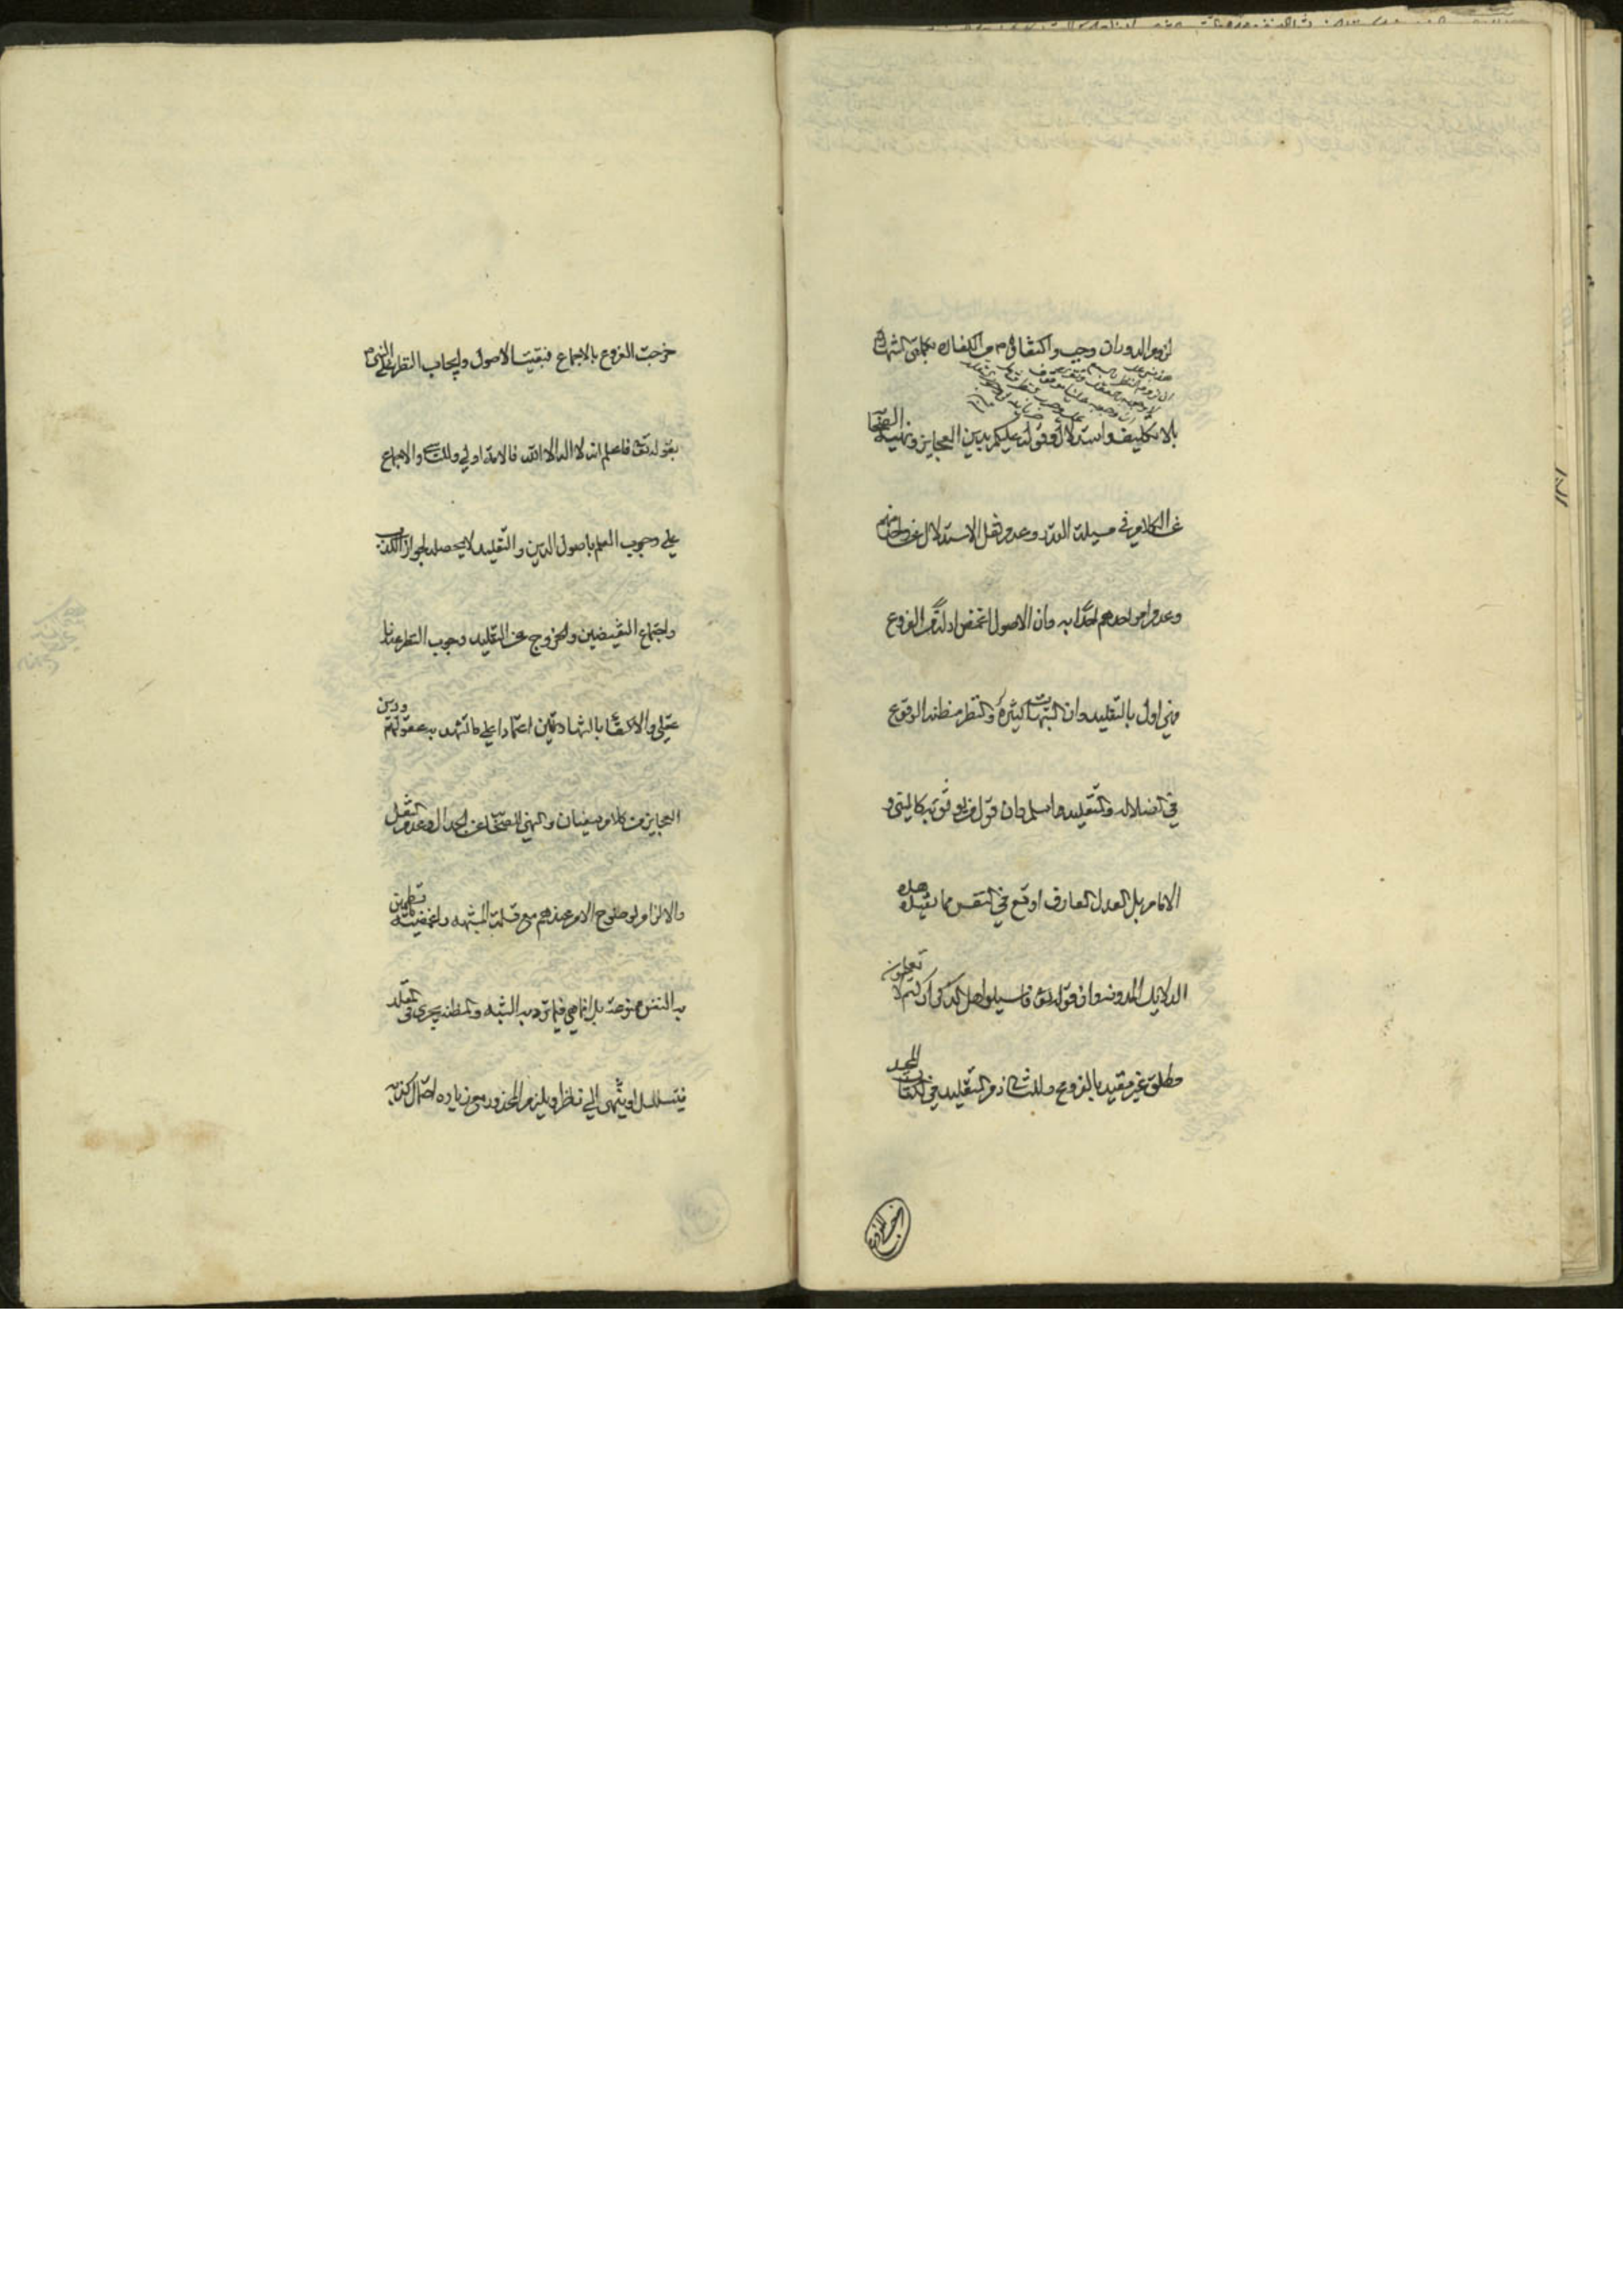 لزوم الدور ان وجب واكتفائه م من الكفار بكلمتى الشهادة
بلا تكليف واستدلال وقوله عليكم بدين العجايز ونهيه الصحابة
عن الكلام فى مسيلة القدر وعدم نقل الاستدلال عن واحد منهم
وعدم امر احدهم احدا به وان الاصول اغمض ادلة من الفروع
فهى اولى بالتقليد وان الشبهات كثيرة والنظر مظنة الوقوع
فى الضلالة والتقليد اسلم وان قول من يوثق به كالنبى و
الامام بل العدل العارف اوقع فى النفس مما تفيده هذه
الدلايل المدونة وان قوله تعالى فاسيلوا اهل الذكر ان كنتم لا تعلمون
مطلق غير مقيد بالفروع وللثانى ذم التقليد فى الكتاب المجيد
خرجت الفروع
خرجت الفروع بالاجماع فبقيت الاصول وايجاب النظر على النبى م
بقوله تعالى فاعلم انه لا اله الا الله فالامة اولى وللتاسى والاجماع
على وجوب العلم باصول الدين والتقليد لا يحصله لجواز الكذب
واجتماع النقيضين والخروج عن التقليد ووجوب النظر عندنا
عقلى والاكتفاء بالشهادتين اعتمادا على ما تشهد به عقولهم ودين
العجايز من كلام سفيان والنهى للصحابة عن الجدال وعدم النقل
والالزام لوضوح الامر عندهم مع قلة الشبهة واغمضية ما تطمئن
به النفس ممنوعة بل انما هى فيما ترد به الشبه والمظنة يجرى فى المقلد
فيتسلسل او ينتهى الى ناظر ويلزم المحذور مع زيادة احتمال كذبه